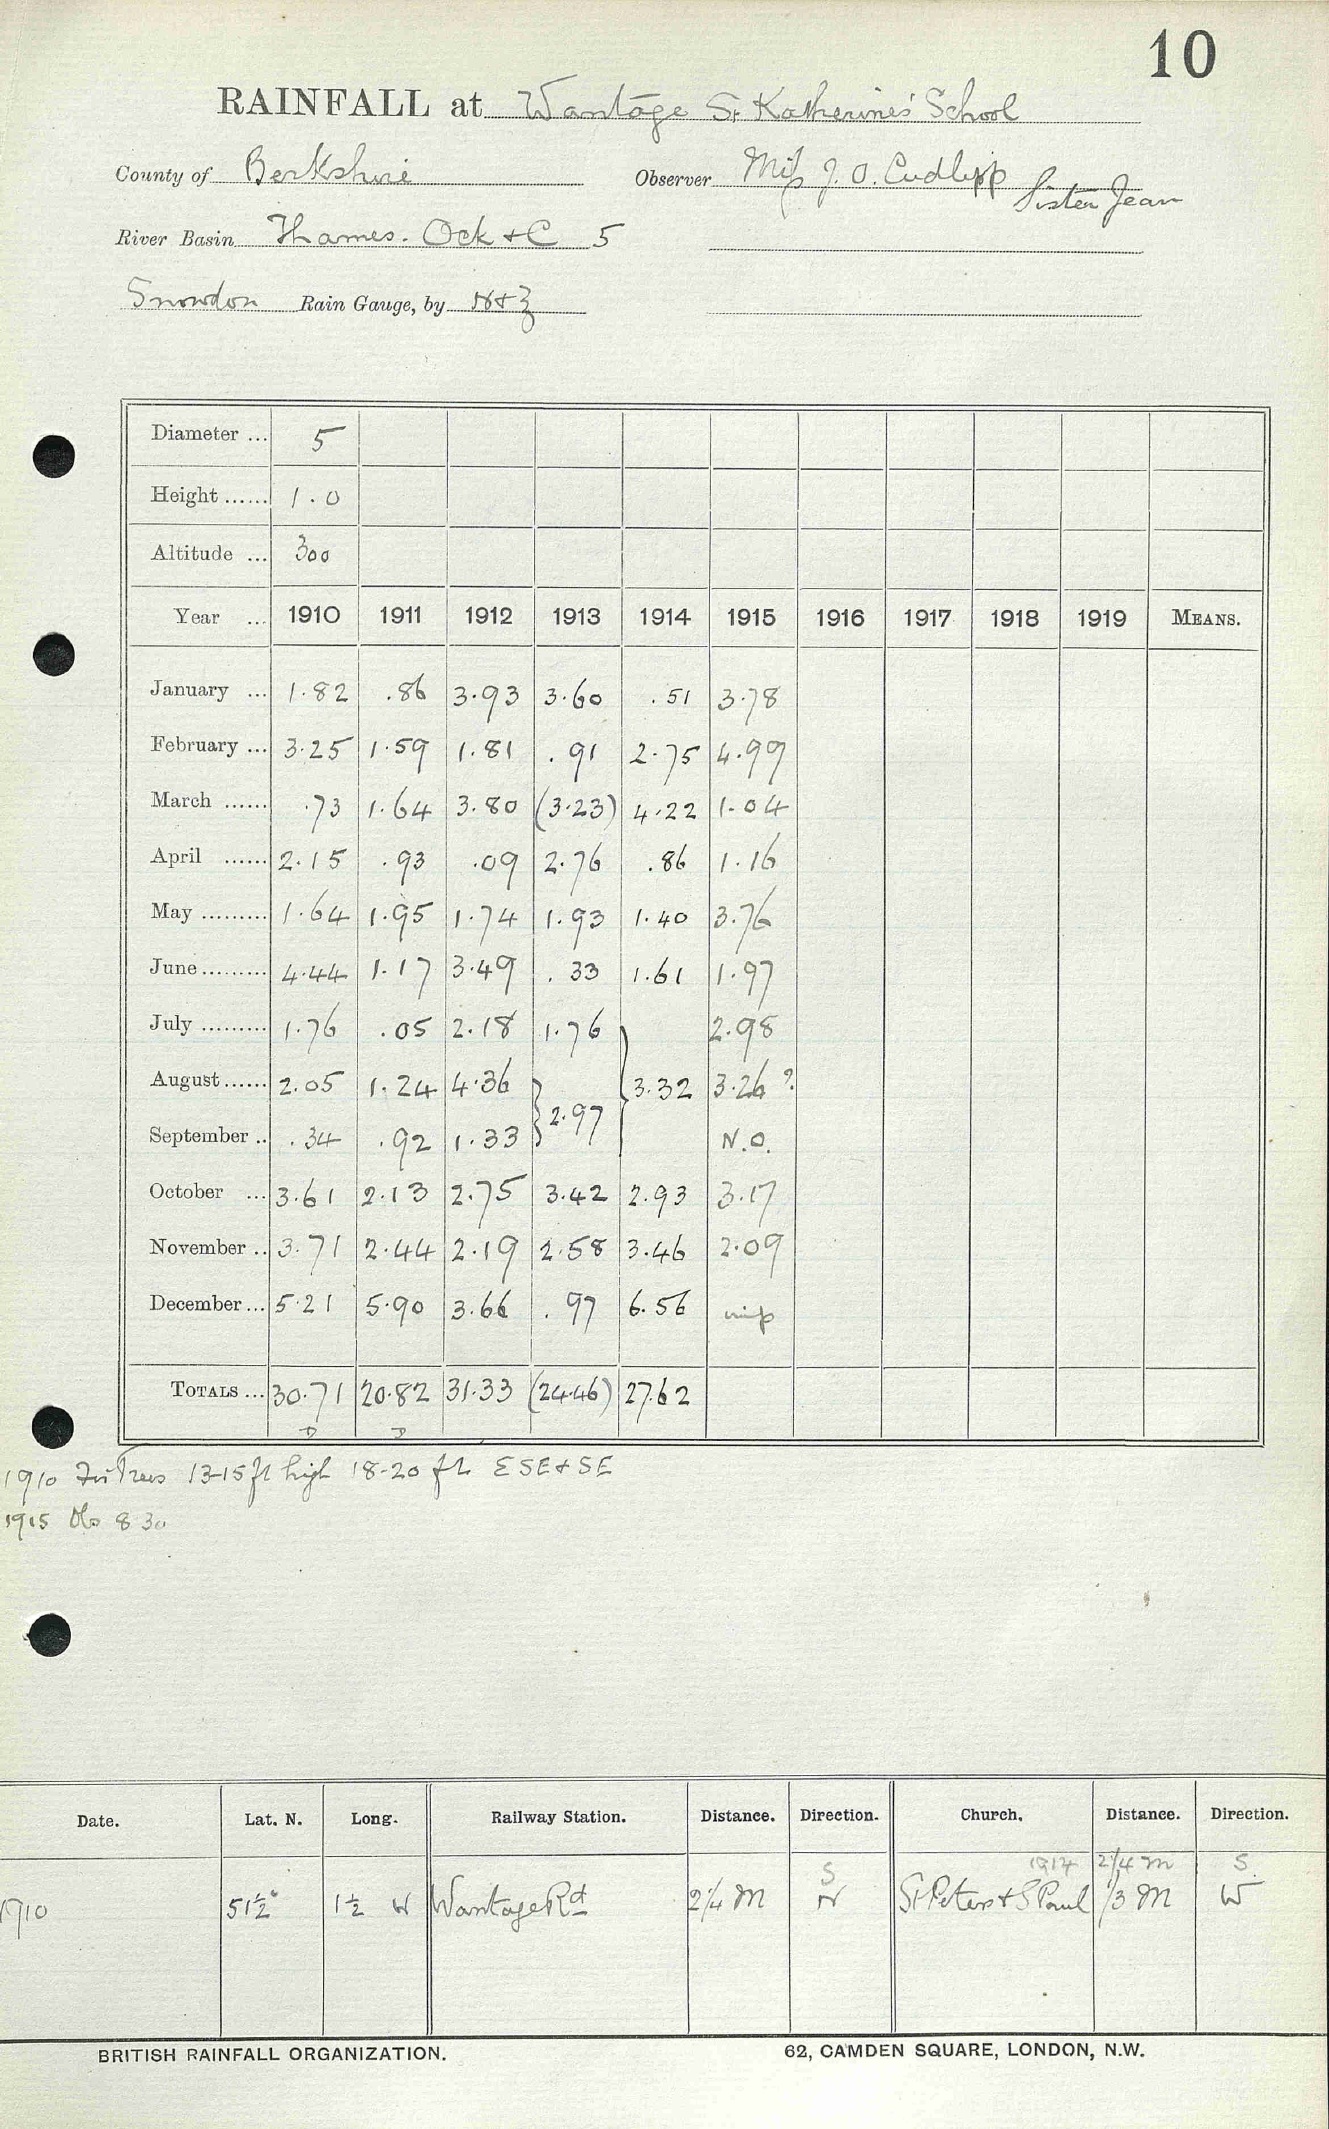 10
RAINFALL at Wantage St Katherine's School
County of Berkshire Observer Miss J. O. Cudlipp
Sister Jean
River Basin Thames. Ock & C 5
Snowdon Rain Gauge, by N & Z
Diameter ... 5
Height ...... 1.0
Altitude ... 300
Year ... 1910 1911 1912 1913 1914 1915 1916 1917 1918 1919 MEANS.
January ... 1.82 .86 3.93 3.60 .51 3.78
February ... 3.25 1.59 1.81 .91 2.75 4.99
March ...... .73 1.64 3.80 (3.23) 4.22 1.04
April ...... 2.15 .93 .09 2.76 .86 1.16
May ......... 1.64 1.95 1.74 1.93 1.40 3.76
June ......... 4.44 1.17 3.49 .33 1.61 1.97
July ......... 1.76 .05 2.18 1.76 2.98
August ...... 2.05 1.24 4.36 3.32 3.26 ?
2.97
September .. .34 .92 1.33 N.O.
October ... 3.61 2.13 2.75 3.42 2.93 3.17
November .. 3.71 2.44 2.19 2.58 3.46 2.09
December ... 5.21 5.90 3.66 .97 6.56 miss
TOTALS ... 30.71 20.82 31.33 (24.46) 27.62
D D
1910 Fir Trees 13-15 ft high 18-20 ft ESE & SE
1915 Obs 8 30
Date. Lat. N. Long. Railway Station. Distance. Direction. Church. Distance. Direction.
S 1914 2 1/4 m S
1910 51½° 1½ W Wantage Rd 2 1/4 M N St Peters & S Paul 1/3 M W
BRITISH RAINFALL ORGANIZATION. 62, CAMDEN SQUARE, LONDON, N.W.